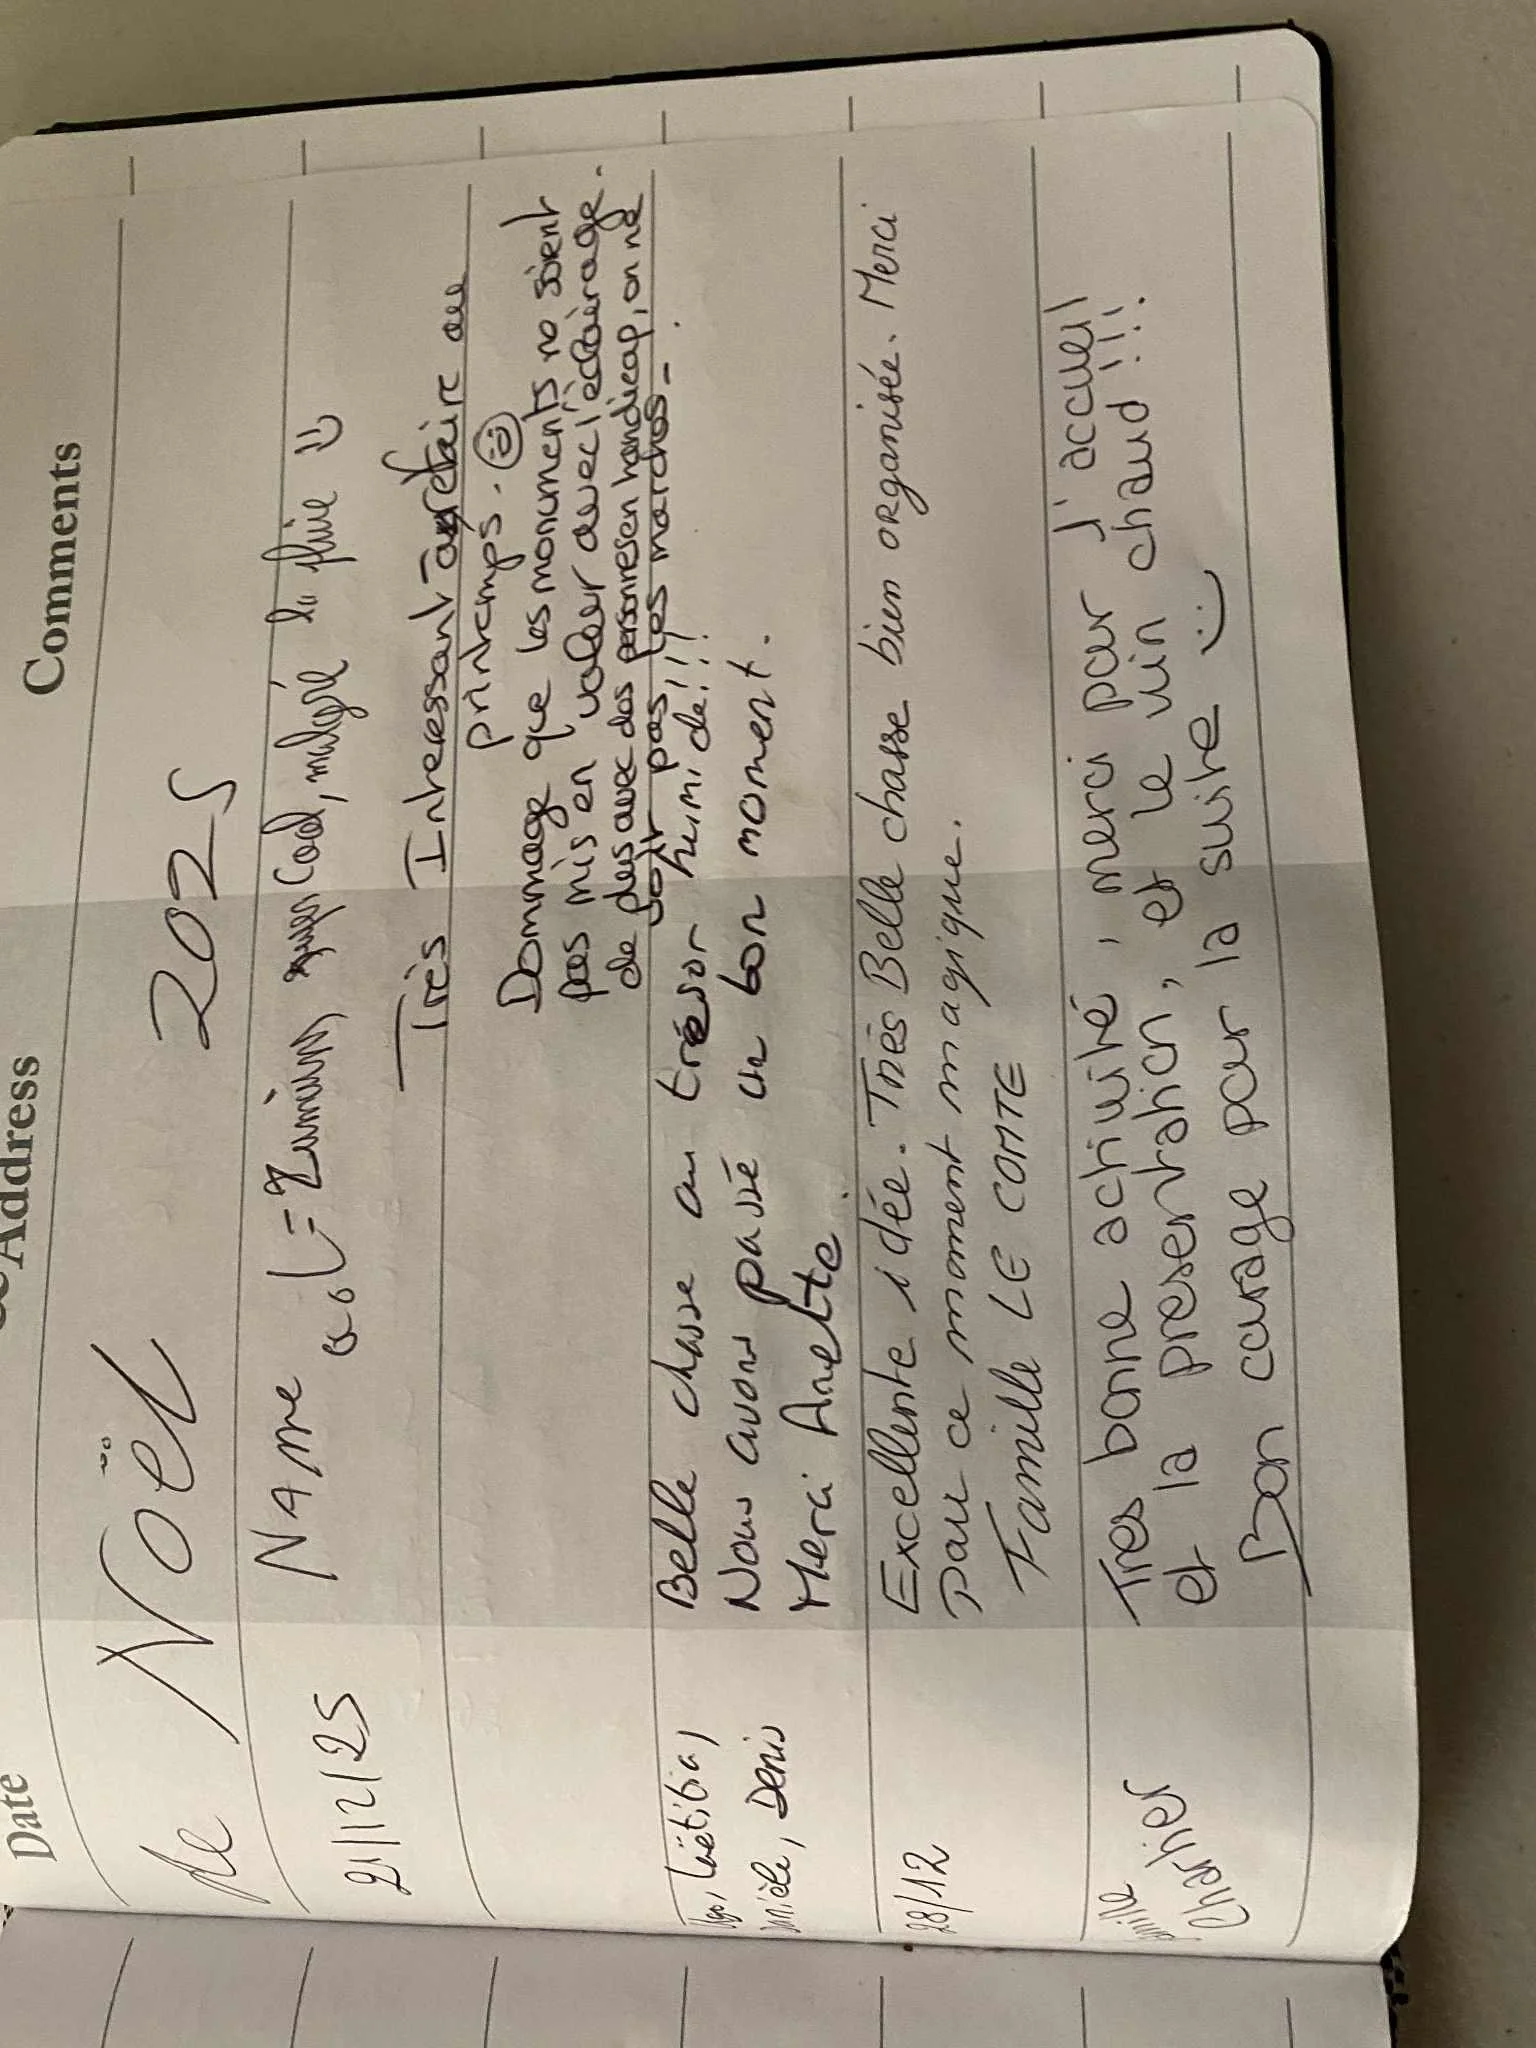 Date Address Comments
de Noël 2025
21/12/25 N4me
super Cool, malgré la pluie
Très Interessant à refaire au
printemps.
Dommage que les monuments ne soient
pas mis en valeur avec l'éclairage.
de plus avec des personnes en handicap, on ne
voit pas les marches
Laëtitia, Belle chasse au trésor humide!!!
Denis Nous avons passé un bon moment.
Merci Anette
28/12 Excellente idée. Très Belle chasse bien organisée. Merci
pour ce moment magique.
Famille LE COMTE
Très bonne activité, merci pour l'accueil
Charlier et la presentation, et le vin chaud!!!
Bon courage pour la suite :)